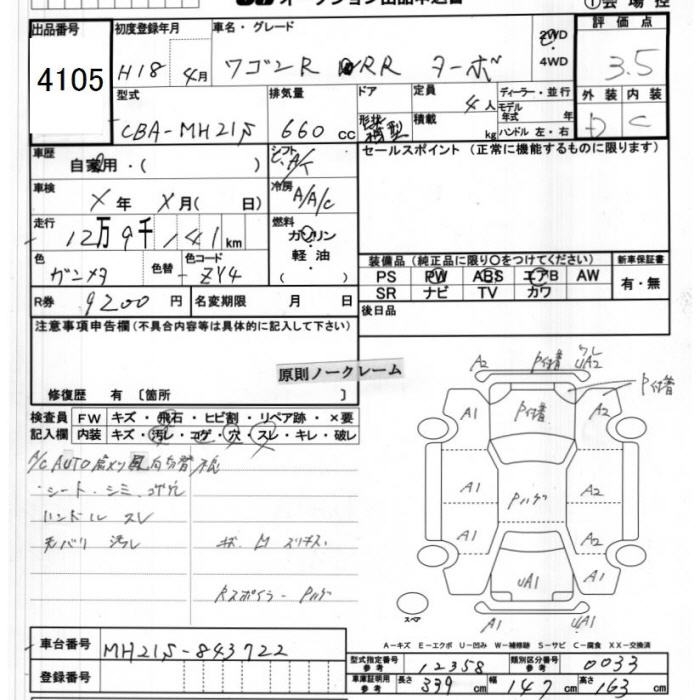 オークション出品申込書 ①会場控
出品番号 4105
初度登録年月 H18年 4月
車名・グレード ワゴンR RR ターボ
2WD・4WD
評価点 3.5
外装 D 内装 C
型式 CBA-MH21S
排気量 660 cc
ドア 形状
定員 4人
積載 kg
ディーラー・並行
モデル年式 年
ハンドル 左・右
車歴 自家用・( )
シフト A/T
セールスポイント (正常に機能するものに限ります)
車検 X年 X月( 日)
冷房 A/A/C
走行 12万9千141km
燃料 ガソリン・軽油 ( )
色 ガンメタ 色替 色コード ZY4
装備品(純正品に限り○をつけてください) 新車保証書
PS PW ABS エアB AW 有・無
SR ナビ TV カワ
R券 9200円 名変期限 月 日
後日品
注意事項申告欄(不具合内容等は具体的に記入して下さい)
原則ノークレーム
修復歴 有 〔箇所 〕
検査員 FW キズ・飛石・ヒビ割・リペア跡・×要
記入欄 内装 キズ・汚レ・コゲ・穴・スレ・キレ・破レ
A/C AUTO
・シート・シミ コゲ穴
ハンドル スレ
天バリ 汚レ
Rスポイラー Pハゲ
A2 P付着 ワレ UA2
P付着
A1 P付着 A2
A1 Pハゲ A2
A1 A2
A1 UA1 A1
スペア
A1 UA1
A=キズ E=エクボ U=凹み W=補修跡 S=サビ C=腐食 XX=交換済
車台番号 MH21S-843722
登録番号
型式指定番号 参考 12358 類別区分番号 参考 0033
車庫証明用 参考 長さ 339cm 幅 147cm 高さ 163cm